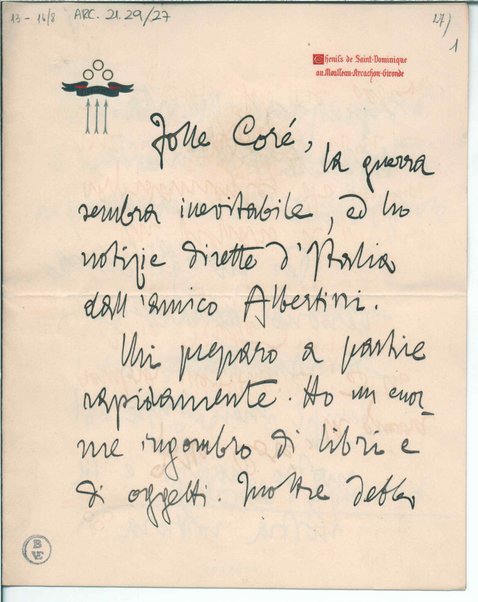 13 - 16/8 ARC. 21.29/27
27)
1
Chenils de Saint-Dominique
au Moulleau-Arcachon-Gironde
Folle Coré,
la guerra
sembra inevitabile, ed ho
notizie dirette d'Italia
dall'amico Albertini.
Mi preparo a partire
rapidamente. Ho un enor-
me ingombro di libri e
di oggetti. Inoltre debbo
B
VE